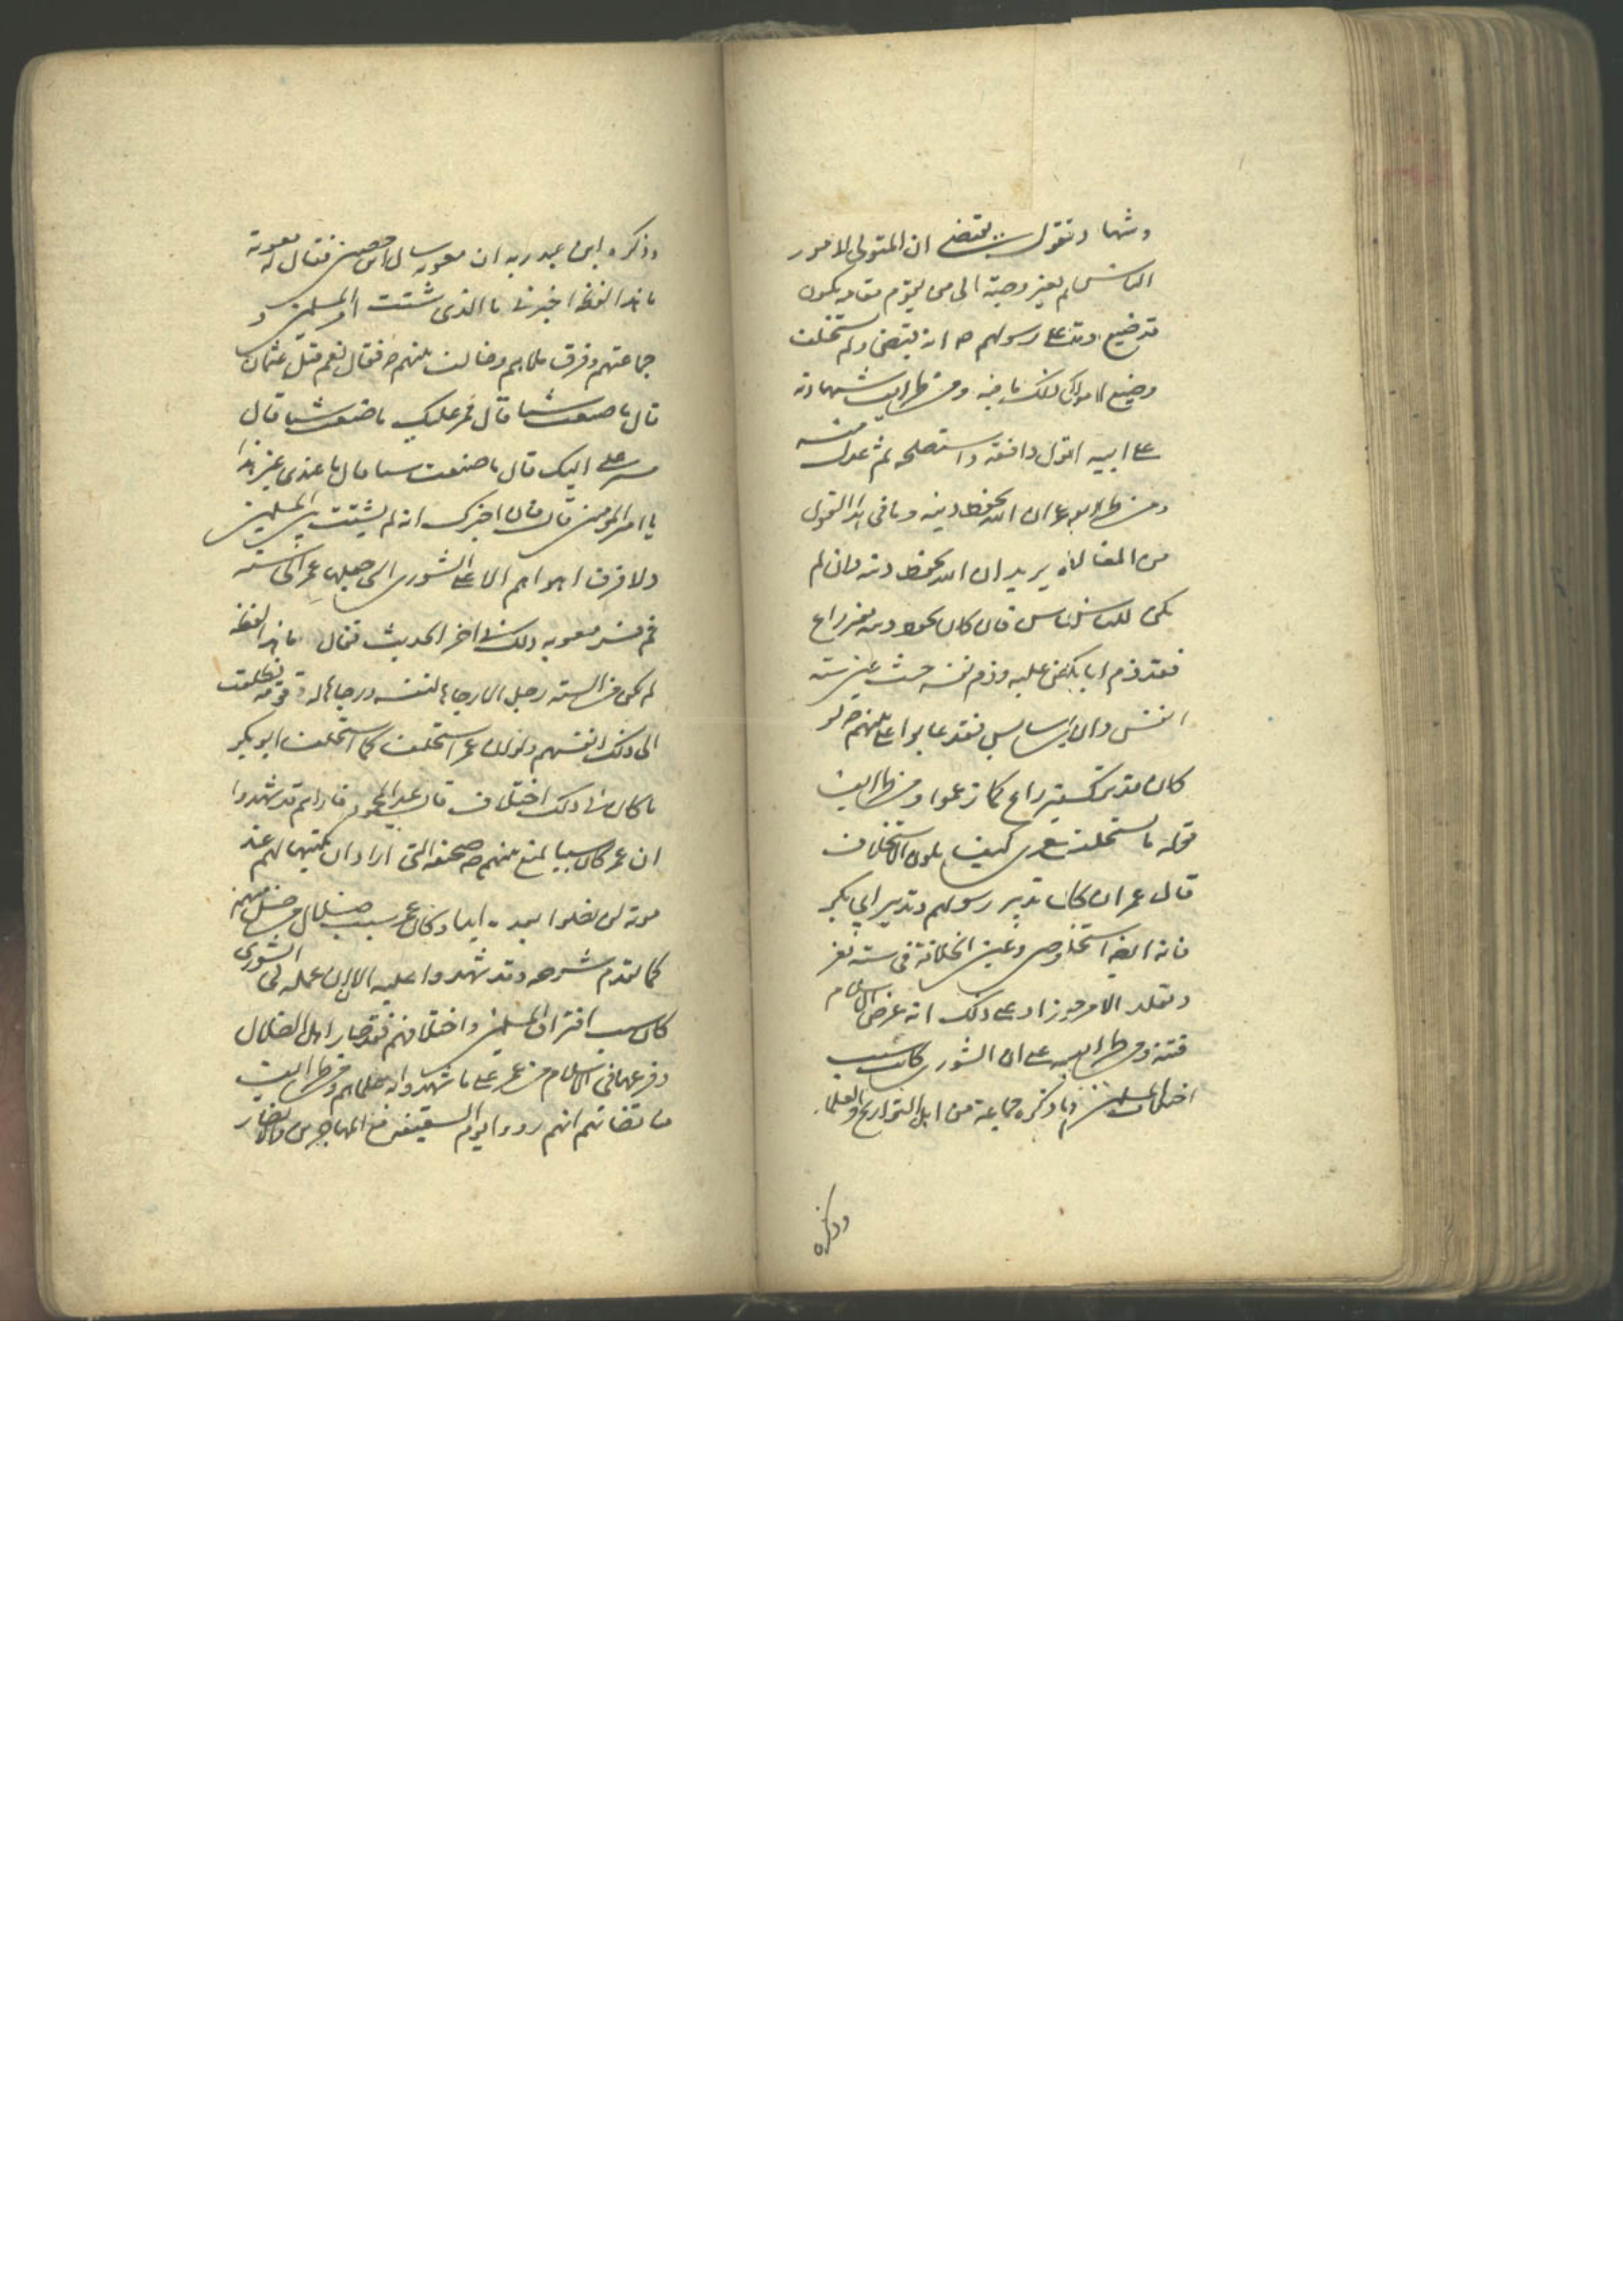 وشهادته تقول يقتضي ان المتولي لامور
الناس لم يعين وصيه الى من يقوم مقامه يكون
قد ضيع وقد على رسولهم ص انه يقضي ولم يستخلف
وضيع الامور الى ذلك ما فيه ومن طرايف شهادته
على ابيه القول وافقه واستصلحه ثم عدل منه
ومن طرايف عمر ان الله يحفظ دينه وما في هذا القول
من المغالاة يريد ان الله يحفظ دينه وان لم
يكن للناس فان كان يحفظ دينه بغير راع
فقد ذم ابا بكر عليه وذم نفسه حيث عين سته
انفس وان فقد عابوا على نبيهم ص لو
كان قد تركهم بغير راع كما زعموا ومن طرايف
قوله ما يستخلف كيف يكون الاستخلاف
قال عمر ان كان تدبير رسولهم وتدبير ابي بكر
فانه ايضا استخلف وعين الخلافة في سته نفر
وتقلد الامر وزاد على ذلك انه عرض الاسلام
فتنه ومن طرايف على ان الشورى كانت سبب
اختلاف المسلمين وما ذكره جماعة من اهل التواريخ والعلماء
وذكره
وذكره ابن عبد ربه ان معويه سال ابن حصين فقال له معوية
ما هذا لفظه اخبرني ما الذي شتت امر المسلمين و
جماعتهم وفرق ملاهم وخالف بينهم فقال نعم قتل عثمان
قال ما صنعت شيا قال فمر عليك ما صنعت شيا قال
مسير علي اليك قال ما صنعت شيا قال ما عندي غير هذا
يا امير المومنين قال فان اخبرك انه لم يشتت بين المسلمين
ولا فرق اهواهم الا على الشورى التي جعلها عمر الى سته
ثم فسر معويه ذلك في اخر الحديث فقال ما هذا لفظه
لم يكن من السته رجل الا رجاها لنفسه ورجاها له قومه وتطلعت
الى ذلك انفسهم ولو ان عمر استخلف كما استخلف ابو بكر
ما كان في ذلك اختلاف قال عبد المحمود فاراهم قد شهدوا
ان عمر كان سببا لمنع نبيهم ص صحيفه التي اراد ان يكتبها لهم عند
موته لن يضلوا بعده ابدا وكان عمر سبب ضلال من ضل منهم
كما تقدم شرحه وقد شهدوا عليه الان ان عمله في الشورى
كان سبب افتراق المسلمين واختلافهم فقد صار اهل الضلال
وفرعها في الاسلام من عمر على ما شهدوا به علماهم ومن طرايف
مناقضاتهم انهم رووا يوم السقيفه من المهاجرين والانصار